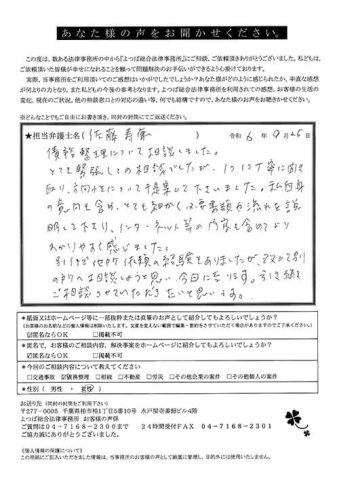 あなた様の声をお聞かせください。
この度は、数ある法律事務所の中から『よつば総合法律事務所』にご相談、ご依頼頂きありがとうございました。私どもは、
ご依頼頂いた皆様が幸せになれることを願って問題解決のお手伝いができるよう心掛けております。
実際、当事務所をご利用頂いてのご感想はいかがでしたでしょうか？あなた様がどのように感じられたか、率直な感想
が何よりの力となり、また私どもの今後の参考となります。よつば総合法律事務所を利用されての感想、お客様の生活
の変化、現在のご状況、他の相談窓口との対応の違い等、何でも結構ですので、あなた様の声をお聞かせください。
※どんなことでもご自由にお書き頂き、同封の封筒にてご返送ください。
★担当弁護士名（佐藤寿康）　令和6年9月25日
債務整理について相談しました。
とても緊張しての相談でしたが、1つ1つ丁寧に聞き
取り、方向性について提案して下さいました。私自身
の意向も含め、とても細かく必要書類や流れを説
明して下さり、インターネット等の内容も含めてより
わかりやすく感じました。
ご相談させていただきたいと思います。
★紙面又はホームページ等に一部抜粋または直筆のお声として紹介してもよろしいでしょうか？
（お客様のお名前などの個人情報は削除いたします。文意を変えない範囲で編集・省略をさせていただく場合がありますのでご了承ください。）
☑匿名ならOK　□掲載不可
★匿名で、お客様のご相談内容、解決事案をホームページに紹介してもよろしいでしょうか？
☑匿名ならOK　□掲載不可
★今回のご相談内容について教えてください
□交通事故　☑債務整理　□相続　□不動産　□労災　□その他企業の案件　□その他個人の案件
★性別（ 男性 ・ 女性 ）
お送り先（同封の封筒をご利用下さい）
〒277-0005　千葉県柏市柏1丁目5番10号　水戸屋壱番館ビル4階
よつば総合法律事務所　お客様の声係
ご質問は04-7168-2300まで　24時間受付FAX　04-7168-2301
ご協力誠にありがとうございました。
《個人情報の保護について》
この用紙にご記入いただきました情報は、当事務所のお客様の声として厳重に管理し、目的外には使用いたしません。